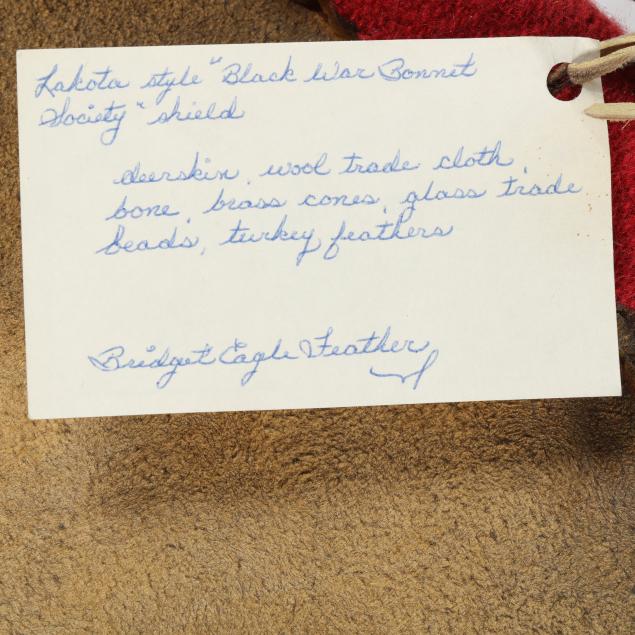 Lakota style "Black War Bonnet
Society" shield
deerskin, wool trade cloth,
bone, brass cones, glass trade
beads, turkey feathers
Bridget Eagle Feather